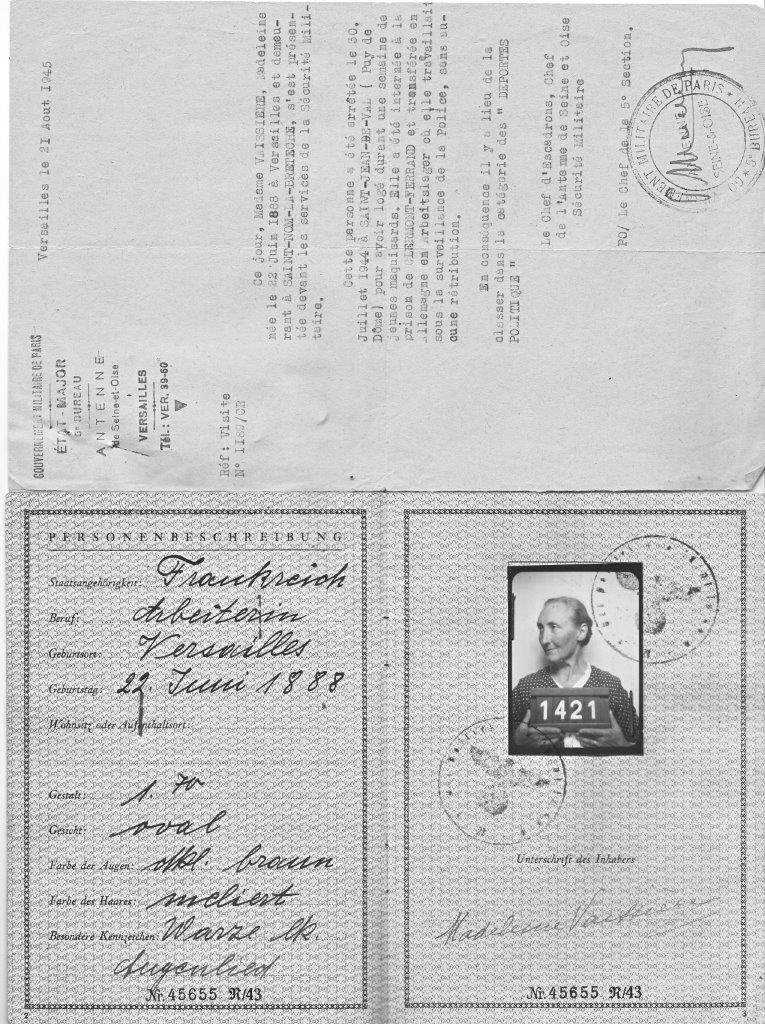 GOUVERNEMENT MILITAIRE DE PARIS
ÉTAT-MAJOR
5e BUREAU
ANTENNE
de Seine-et-Oise
VERSAILLES
Tél.: VER. 39-60
Réf: Visite
N° 1180/CR
Versailles le 21 Aout 1945
Ce jour, Madame VAISSIERE, Madeleine
née le 22 Juin 1888 à Versailles et demeu-
rant à SAINT-NOM-LA-BRETECHE, s'est présen-
tée devant les services de la Sécurité Mili-
taire.
Cette personne a été arrêtée le 30.
Juillet 1944 à SAINT-JEAN-DE-VAL ( Puy de
Dôme) pour avoir logé durant une semaine de
jeunes maquisards. Elle a été internée à la
prison de CLERMONT-FERRAND et transférée en
Allemagne en Arbeitslager où elle travaillait
sous la surveillance de la Police, sans au-
cune rétribution.
En conséquence il y a lieu de la
classer dans la catégorie des " DEPORTES
POLITIQUE "
Le Chef d'Escadrons, Chef
de l'Antenne de Seine et Oise
Sécurité Militaire
PO/ Le Chef de la 5° Section.
MILITAIRE DE PARIS
5e BUREAU
SEINE-&-OISE
PERSONENBESCHREIBUNG
Staatsangehörigkeit: Frankreich
Beruf: Arbeiterin
Geburtsort: Versailles
Geburtstag: 22. Juni 1888
Wohnsitz oder Aufenthaltsort:
Gestalt: 1.70
Gesicht: oval
Farbe der Augen: dkl. braun
Farbe des Haares: meliert
Besondere Kennzeichen: Warze lk.
Augenlied
Nr. 45655 R/43
2
1421
Unterschrift des Inhabers
Madeleine Vaissiere
Nr. 45655 R/43
3